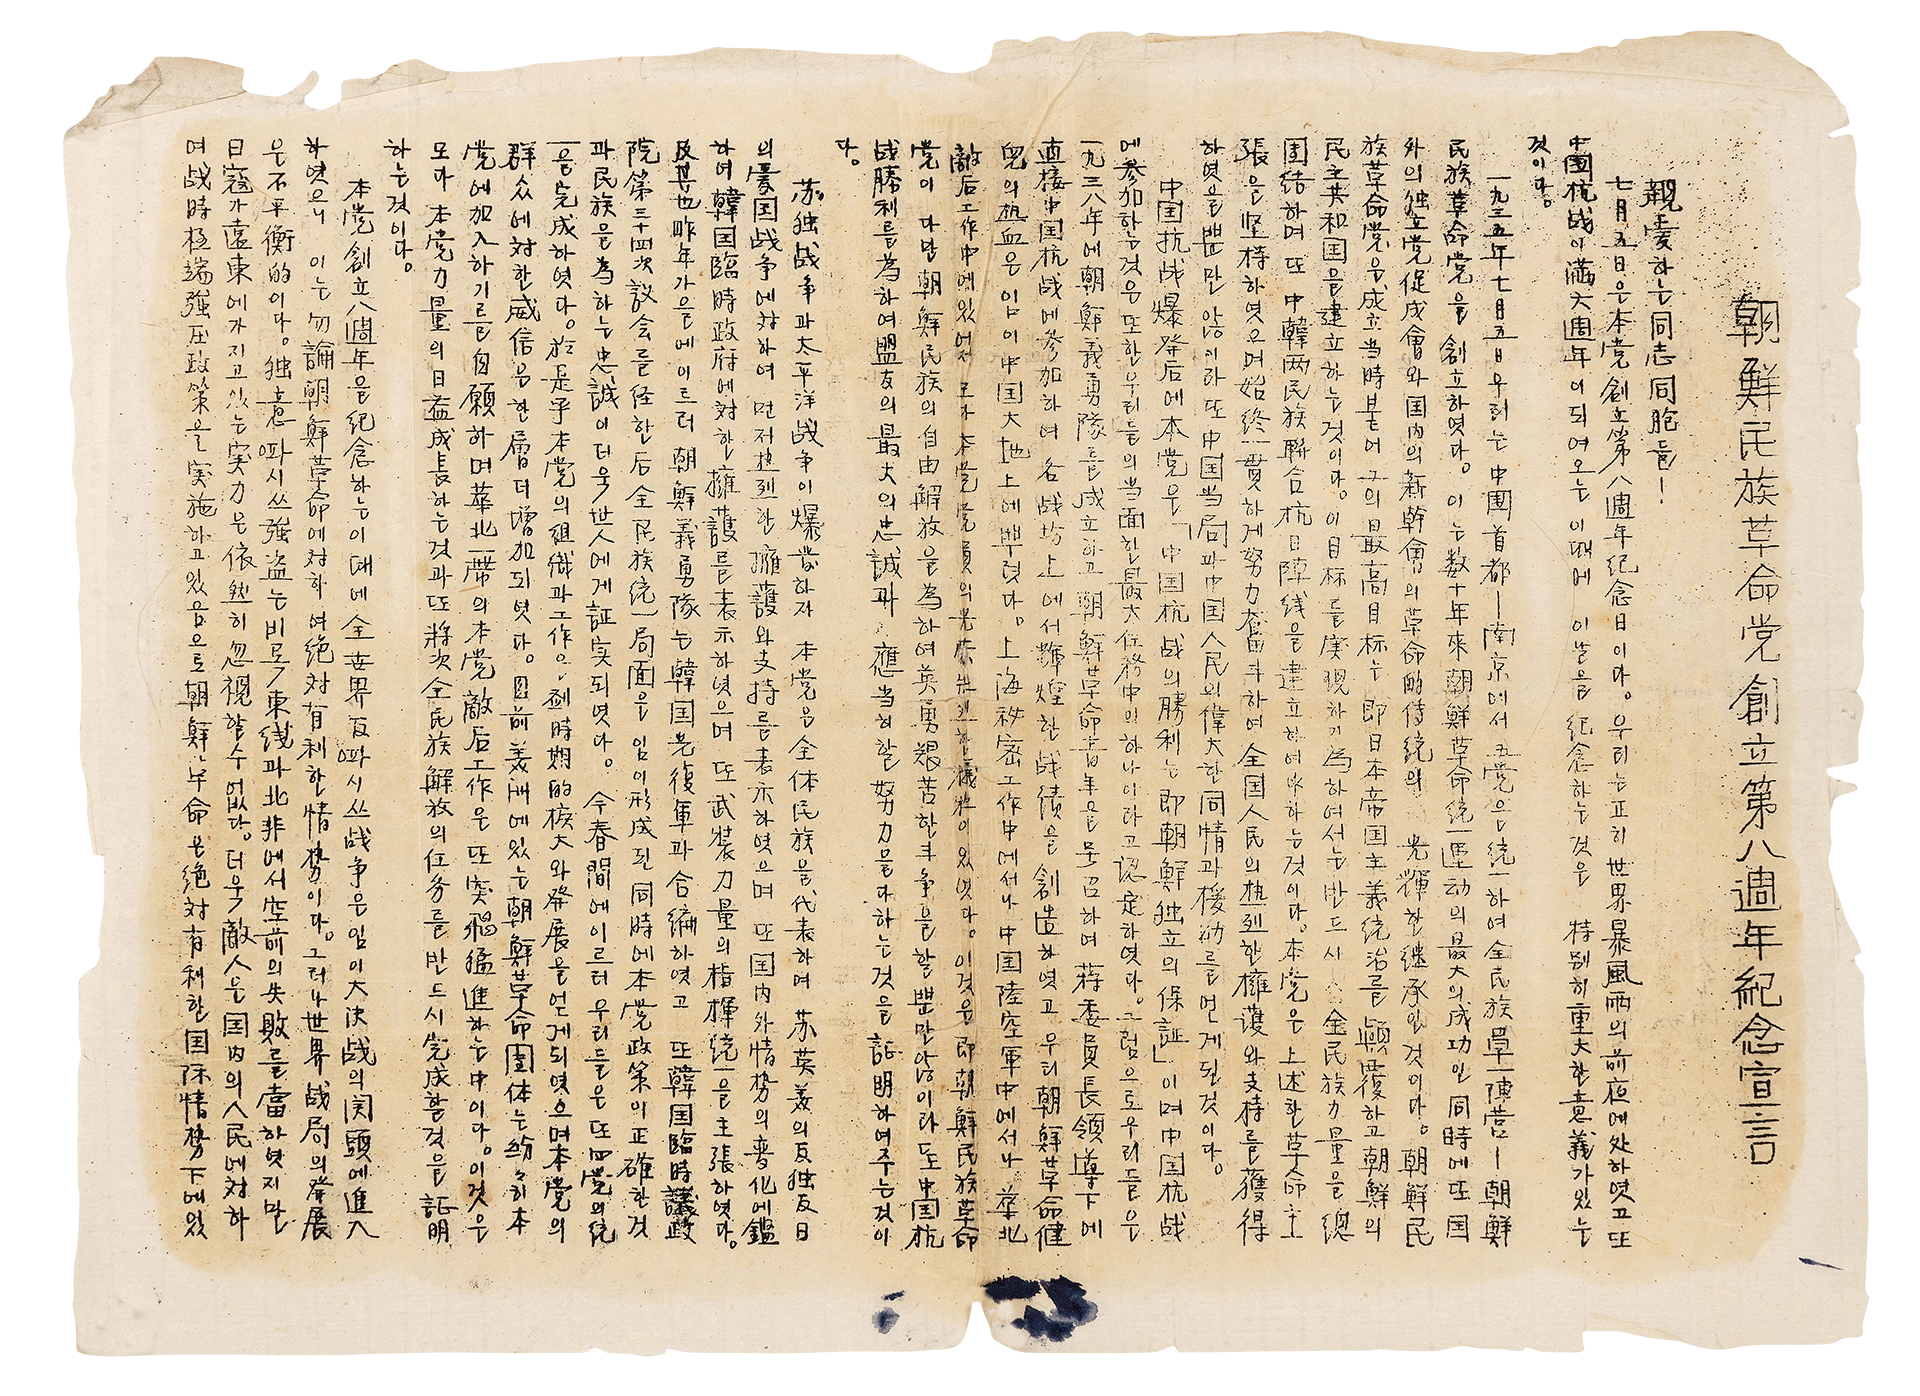 朝鮮民族革命党創立第八週年紀念宣言
親愛하는同志同胞들!
七月五日은本党創立第八週年紀念日이다。우리는正히世界暴風雨의前夜에处하엿고또
中國抗战이滿六週年이되여오는이때에 이날을紀念하는것은 特別히重大한意義가있는
것이다。
一九三五年七月五日우리는中國首都—南京에서五党은統一하여全民族単一陣营—朝鮮
民族革命党을創立하엿다。이는数十年來朝鮮革命統一運动의最大의成功인同時에또国
外의独立党促成會와国內의新幹會의革命的传統의 光輝한継承인것이다。朝鮮民
族革命党은成立当時붙어그의最高目标는即日本帝国主義統治를顚覆하고朝鮮의
民主共和国을建立하는것이다。이目标를实現하기為하여서는반드시全民族力量을總
团结하며또中韓两民族聯合抗日陣线을建立하여야하는것이다。本党은上述한革命主
張을坚持하엿으며始終一貫하게努力奮斗하여全国人民의热烈한擁護와支持를獲得
하엿을뿐만않이라또中国当局과中国人民의偉大한同情과援助를얻게된것이다。
中国抗战爆発后에本党은「中国抗战의勝利는即朝鮮独立의保証」이며中国抗战
에参加하는것은또한우리들의当面한最大任務中의하나이라고認定하엿다。그럼으로우리들은
一九三八年에朝鮮義勇隊를成立하고朝鮮革命青年을号召하여蒋委員長領導下에
直接中国抗战에参加하여各战场上에서輝煌한战績을創造하엿고우리朝鮮革命健
児의热血은임이中国大地上에뿌렷다。上海秘密工作中에서나中国陸空軍中에서나 華北
敵后工作中에있어서 모다本党党員의 있엇다。이것은即朝鮮民族革命
党이 다만朝鮮民族의自由解放을為하여英勇艰苦한斗争을할뿐만않이라또中国抗
战勝利를為하여盟友의最大의忠誠과 應当히할努力을다하는것을証明하여주는것이
다。
苏独战争과太平洋战争이爆発하자 本党은全体民族을代表하며 苏英美의反独反日
의爱国战争에对하여먼저热烈한擁護와支持를表示하엿으며 또国內外情势의変化에鑑
하여韓国臨時政府에対한擁護를表示하엿으며 또武装力量의指揮統一을主張하엿다。
及其也昨年가을에이르러朝鮮義勇隊는韓国光復軍과合編하엿고 또韓国臨時議政
院第三十四次議会를経한后全民族統一局面을임이形成된同時에本党政策의正確한것
과民族을為하는忠誠이더욱世人에게証实되엿다。今春間에이르러우리들은또四党의統
一을完成하엿다。於是乎本党의組織과工作은 時期的拡大와発展을얻게되엿으며本党의
群众에対한威信은한層더增加되엿다。目前美洲에있는朝鮮革命团体는紛々히本
党에加入하기를自願하며華北一帶의本党敵后工作은또突飛猛進하는中이다。이것은
모다本党力量의日益成長하는것과또將次全民族解放의任务를반드시完成할것을証明
하는것이다。
本党創立八週年을紀念하는이때에全世界反파시쓰战争은임이大决战의関頭에進入
하엿으니 이는勿論朝鮮革命에対하여绝対有利한情势이다。그러나世界战局의発展
은不平衡的이다。独意파시쓰强盗는비로두東线과北非에서空前의失敗를當하엿지만
日寇가遠東에가지고있는实力은依然히忽視할수없다。더욱敵人은国內의人民에対하
여战時極端强圧政策을实施하고있음으로朝鮮革命은绝対有利한国际情势下에있